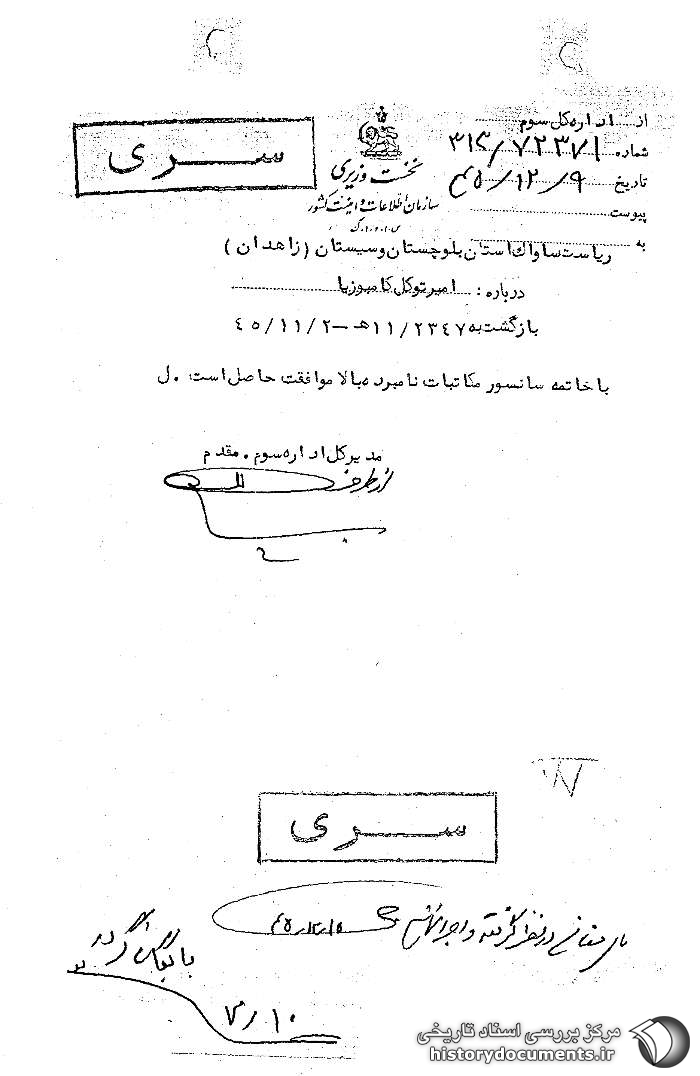 سری
نخست وزیری
سازمان اطلاعات و امنیت کشور
س.ا.و.ا.ک
از اداره کل سوم
شماره ۳۱۲/۷۲۳۷۱
تاریخ ۴۵/۱۲/۹
پیوست
به ریاست ساواک استان بلوچستان و سیستان (زاهدان)
درباره : امیر توکل کامبوزیا
بازگشت به ۱۱/۲۳٤۷ هـ - ٤٥/۱۱/۲
با خاتمه سانسور مکاتبات نامبرده بالا موافقت حاصل است. ل
مدیر کل اداره سوم . مقدم
از طرف
سری
در نظر گرفته و اجرا
۴۵/۱۲/۱۵
بایگانی گردد
مرکز بررسی اسناد تاریخی
historydocuments.ir